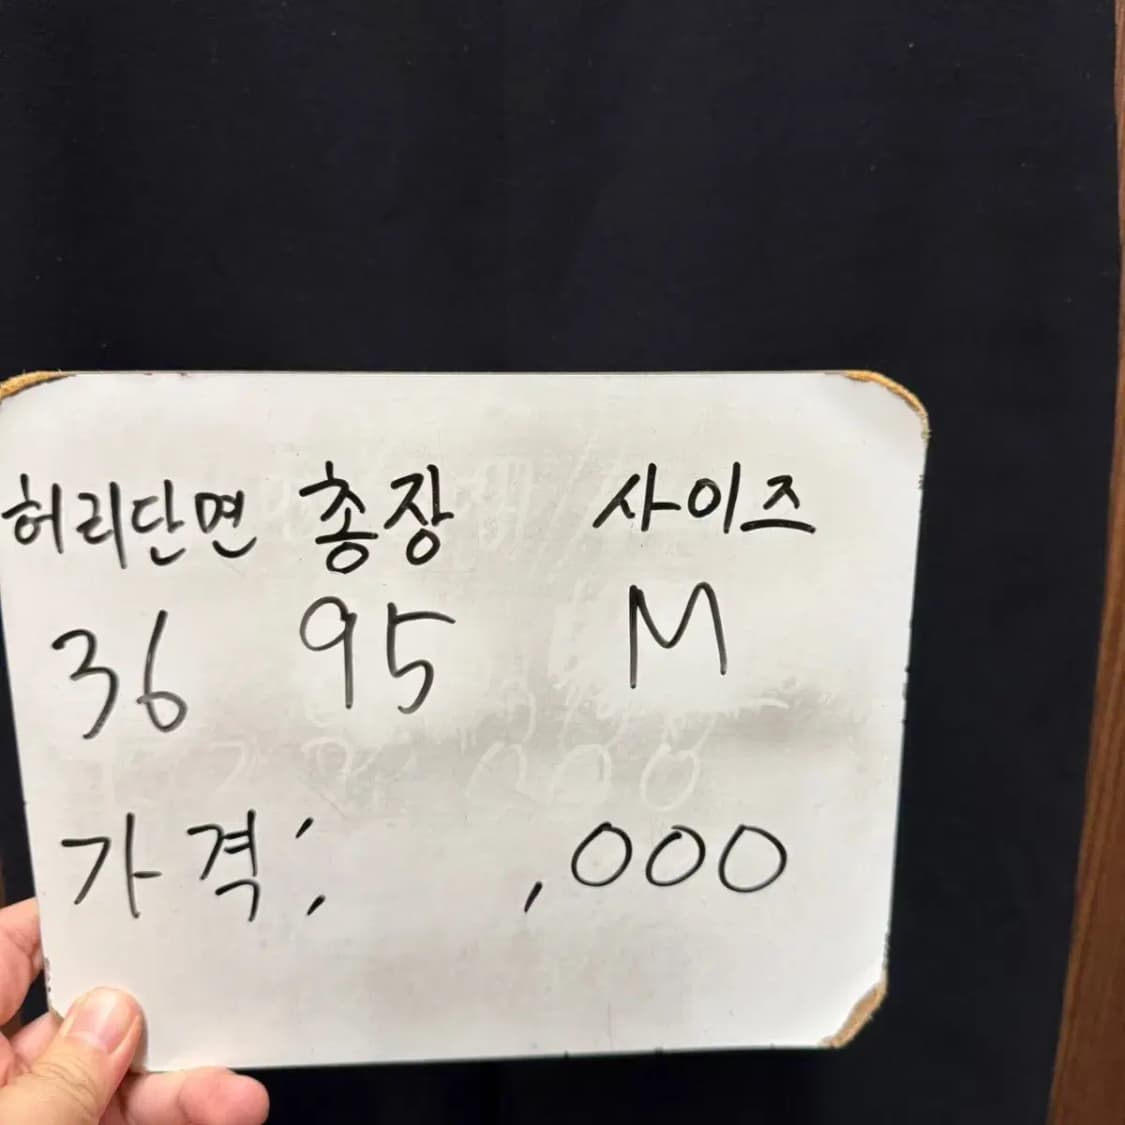 허리단면 총장 사이즈
36 95 M
가격: ,000